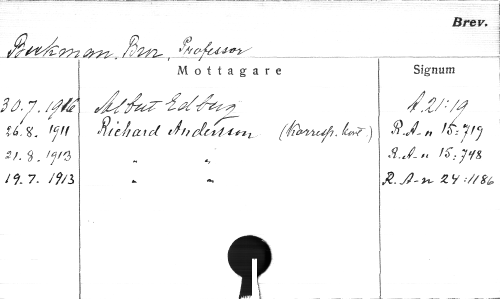 Brev.
Beekman, Bror, Professor
Mottagare Signum
30.7.1916 Albert Edburg A.21:19
26.8.1911 Richard Andersson (Korresp. kort) R.A-n 15:719
21.8.1913 " " R.A-n 15:748
19.7.1913 " " R.A-n 24:1186